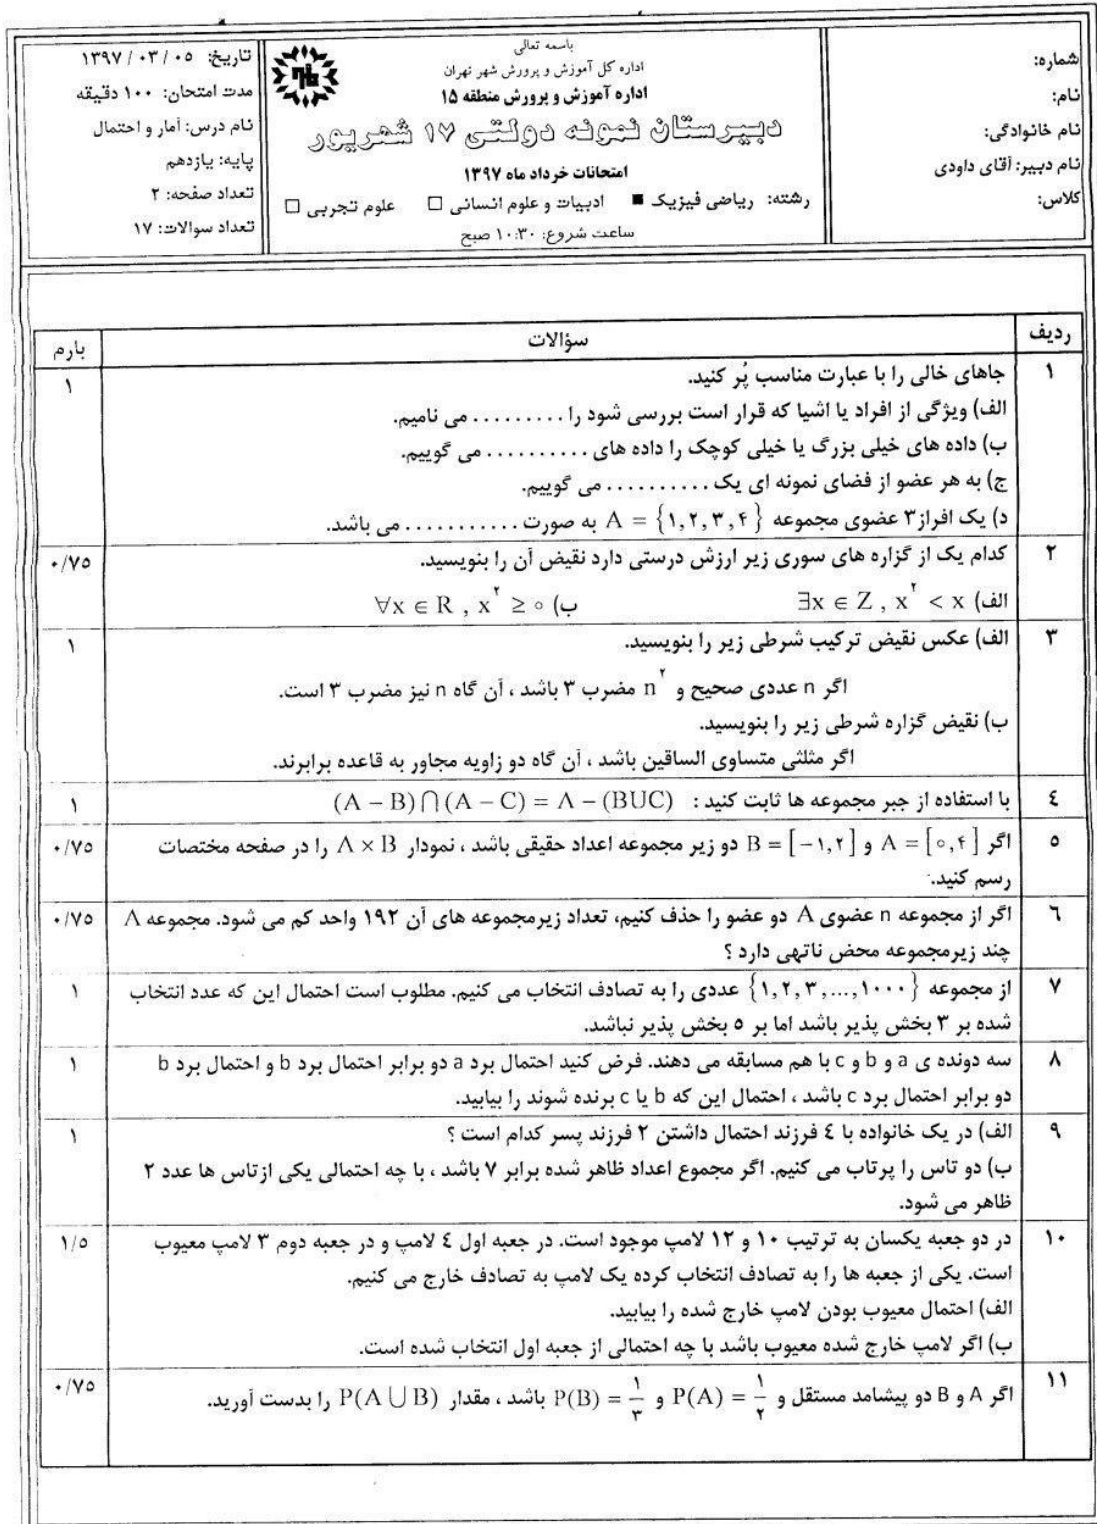 باسمه تعالی
اداره کل آموزش و پرورش شهر تهران
اداره آموزش و پرورش منطقه ۱۵
دبیرستان نمونه دولتی ۱۷ شهریور
امتحانات خرداد ماه ۱۳۹۷
رشته: ریاضی فیزیک ■ ادبیات و علوم انسانی □ علوم تجربی □
ساعت شروع: ۱۰:۳۰ صبح
شماره:
نام:
نام خانوادگی:
نام دبیر: آقای داودی
کلاس:
تاریخ: ۰۵ / ۰۳ / ۱۳۹۷
مدت امتحان: ۱۰۰ دقیقه
نام درس: آمار و احتمال
پایه: یازدهم
تعداد صفحه: ۲
تعداد سوالات: ۱۷
ردیف سؤالات بارم
۱ جاهای خالی را با عبارت مناسب پُر کنید. ۱
الف) ویژگی از افراد یا اشیا که قرار است بررسی شود را .......... می نامیم.
ب) داده های خیلی بزرگ یا خیلی کوچک را داده های .......... می گوییم.
ج) به هر عضو از فضای نمونه ای یک .......... می گوییم.
د) یک افراز۳ عضوی مجموعه A = {۱,۲,۳,۴} به صورت ........... می باشد.
۲ کدام یک از گزاره های سوری زیر ارزش درستی دارد نقیض آن را بنویسید. ۰/۷۵
الف) ∃x ∈ Z , x² < x ب) ∀x ∈ R , x² ≥ ۰
۳ الف) عکس نقیض ترکیب شرطی زیر را بنویسید. ۱
اگر n عددی صحیح و n² مضرب ۳ باشد ، آن گاه n نیز مضرب ۳ است.
ب) نقیض گزاره شرطی زیر را بنویسید.
اگر مثلثی متساوی الساقین باشد ، آن گاه دو زاویه مجاور به قاعده برابرند.
٤ با استفاده از جبر مجموعه ها ثابت کنید : (A − B) ⋂ (A − C) = A − (BUC) ۱
۵ اگر A = [۰,۴] و B = [−۱,۲] دو زیر مجموعه اعداد حقیقی باشد ، نمودار A × B را در صفحه مختصات ۰/۷۵
رسم کنید.
٦ اگر از مجموعه n عضوی A دو عضو را حذف کنیم، تعداد زیرمجموعه های آن ۱۹۲ واحد کم می شود. مجموعه A ۰/۷۵
چند زیرمجموعه محض ناتهی دارد ؟
۷ از مجموعه {۱,۲,۳,...,۱۰۰۰} عددی را به تصادف انتخاب می کنیم. مطلوب است احتمال این که عدد انتخاب ۱
شده بر ۳ بخش پذیر باشد اما بر ۵ بخش پذیر نباشد.
۸ سه دونده ی a و b و c با هم مسابقه می دهند. فرض کنید احتمال برد a دو برابر احتمال برد b و احتمال برد b ۱
دو برابر احتمال برد c باشد ، احتمال این که b یا c برنده شوند را بیابید.
۹ الف) در یک خانواده با ٤ فرزند احتمال داشتن ۲ فرزند پسر کدام است ؟ ۱
ب) دو تاس را پرتاب می کنیم. اگر مجموع اعداد ظاهر شده برابر ۷ باشد ، با چه احتمالی یکی ازتاس ها عدد ۲
ظاهر می شود.
۱۰ در دو جعبه یکسان به ترتیب ۱۰ و ۱۲ لامپ موجود است. در جعبه اول ٤ لامپ و در جعبه دوم ۳ لامپ معیوب ۱/۵
است. یکی از جعبه ها را به تصادف انتخاب کرده یک لامپ به تصادف خارج می کنیم.
الف) احتمال معیوب بودن لامپ خارج شده را بیابید.
ب) اگر لامپ خارج شده معیوب باشد با چه احتمالی از جعبه اول انتخاب شده است.
۱۱ اگر A و B دو پیشامد مستقل و P(A) = ۱/۲ و P(B) = ۱/۳ باشد ، مقدار P(A ⋃ B) را بدست آورید. ۰/۷۵